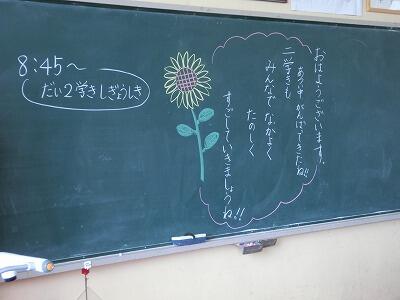 8:45～
だい2学きしぎょうしき
おはようございます。
あつい中がんばってきたね!!
二学きも
みんなで なかよく
たのしく
すごしていきましょうね!!